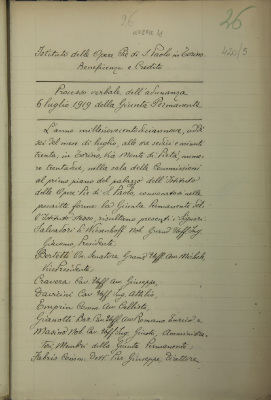 26
26
420/3
Istituto delle Opere Pie di S. Paolo in Torino
Beneficenza e Credito
Processo verbale dell'adunanza
6 luglio 1919 della Giunta Permanente
L'anno millenovecentodiciannove, addì
sei del mese di luglio, alle ore sedici e minuti
trenta, in Torino, via Monte di Pietà, nume-
ro trentadue, nella sala delle Commissioni
al primo piano del palazzo dell'Istituto
delle Opere Pie di S. Paolo, convocata nelle
prescritte forme la Giunta Permanente del-
l'Istituto stesso, risultano presenti i Signori
Salvatori di Nob. Grand'Uff. Ing.
Giacomo, Presidente
Bertetti On. Senatore Grand'Uff. Avv. Michele,
Vice Presidente
Cravera Cav. Uff. Avv. Giuseppe,
Cav. Uff. Ing. Attilio,
Avv.
Gianotti Bar. Cav. Uff. Avv. Romano
Nob. Cav. Uff. Ing. Amministra-
tori Membri della Giunta Permanente
Fabrio Dott. Giuseppe, Direttore